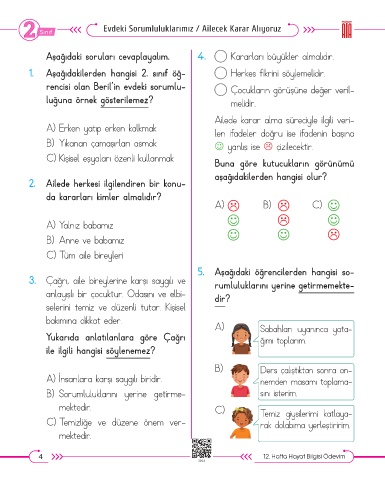 2. Sınıf
Evdeki Sorumluluklarımız / Ailecek Karar Alıyoruz
Aşağıdaki soruları cevaplayalım.
1. Aşağıdakilerden hangisi 2. sınıf öğ-
rencisi olan Beril'in evdeki sorumlu-
luğuna örnek gösterilemez?
A) Erken yatıp erken kalkmak
B) Yıkanan çamaşırları asmak
C) Kişisel eşyaları özenli kullanmak
2. Ailede herkesi ilgilendiren bir konu-
da kararları kimler almalıdır?
A) Yalnız babamız
B) Anne ve babamız
C) Tüm aile bireyleri
3. Çağrı, aile bireylerine karşı saygılı ve
anlayışlı bir çocuktur. Odasını ve elbi-
selerini temiz ve düzenli tutar. Kişisel
bakımına dikkat eder.
Yukarıda anlatılanlara göre Çağrı
ile ilgili hangisi söylenemez?
A) İnsanlara karşı saygılı biridir.
B) Sorumluluklarını yerine getirme-
mektedir.
C) Temizliğe ve düzene önem ver-
mektedir.
4. Kararları büyükler almalıdır.
Herkes fikrini söylemelidir.
Çocukların görüşüne değer veril-
melidir.
Ailede karar alma süreciyle ilgili veri-
len ifadeler doğru ise ifadenin başına
yanlış ise çizilecektir.
Buna göre kutucukların görünümü
aşağıdakilerden hangisi olur?
A) B) C)
5. Aşağıdaki öğrencilerden hangisi so-
rumluluklarını yerine getirmemekte-
dir?
A) Sabahları uyanınca yata-
ğımı toplarım.
B) Ders çalıştıktan sonra an-
nemden masamı toplama-
sını isterim.
C) Temiz giysilerimi katlaya-
rak dolabıma yerleştiririm.
4
12. Hafta Hayat Bilgisi Ödevim